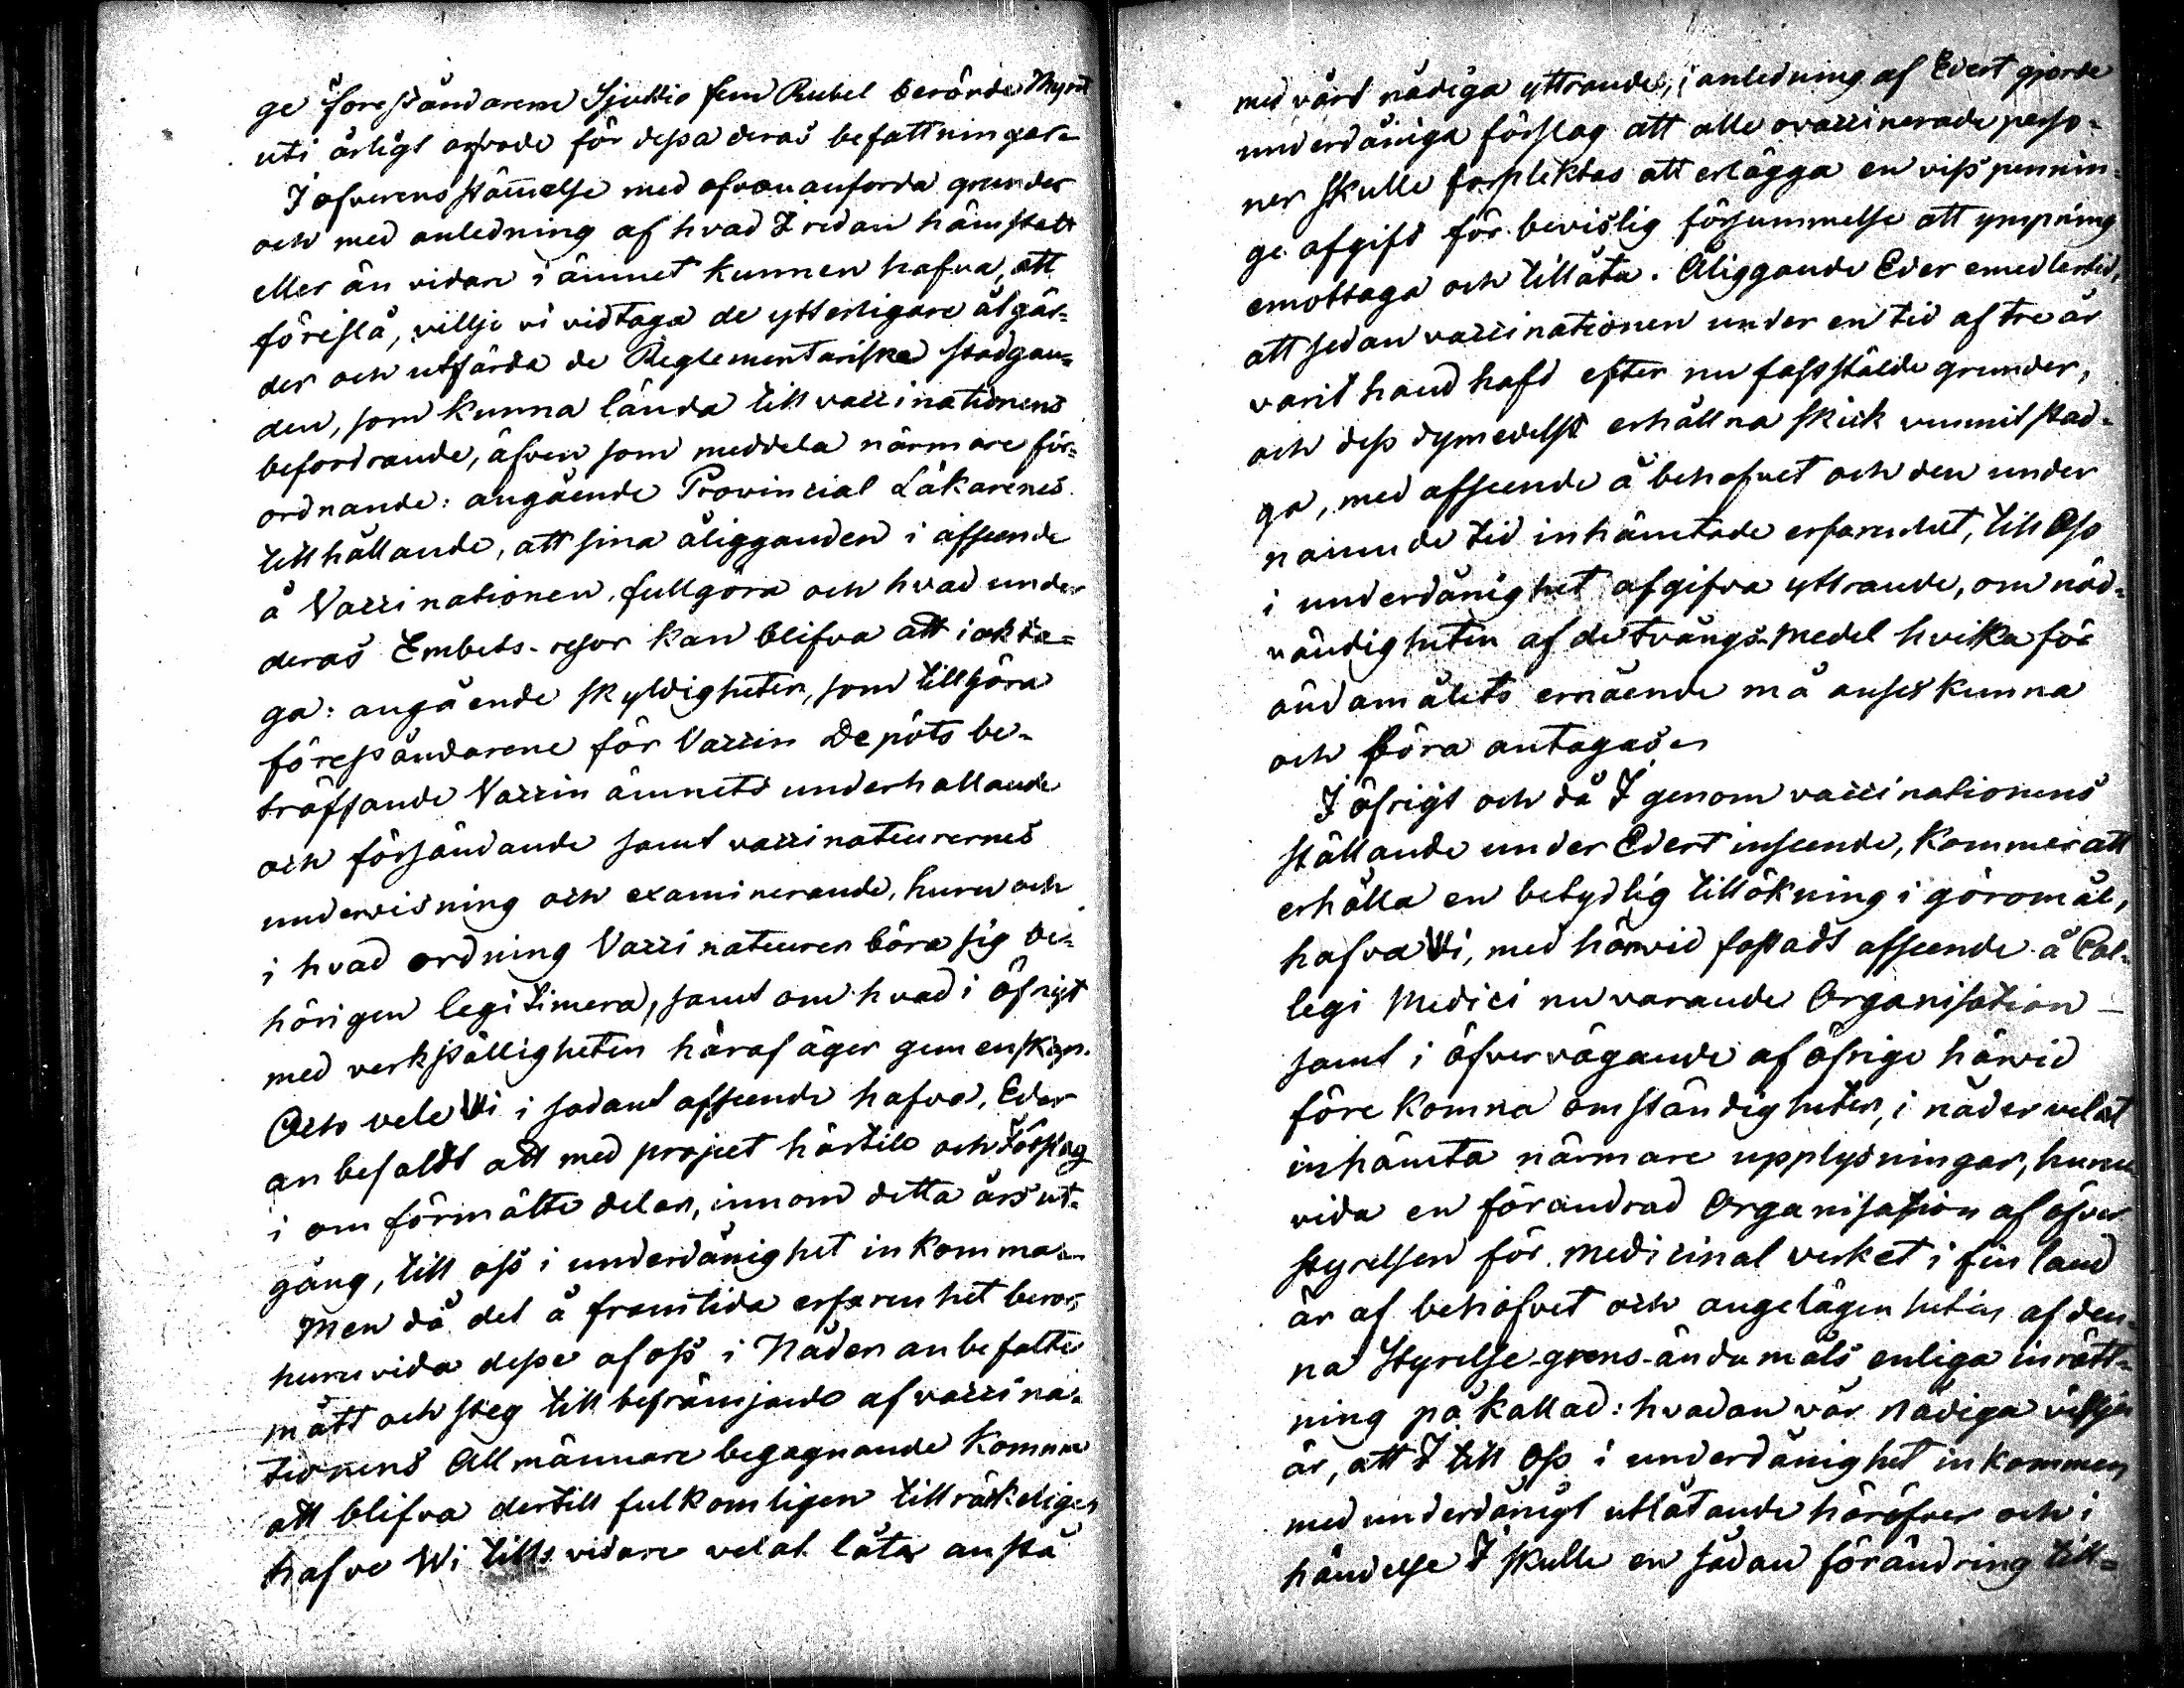 ge Föreståndarene Sjuttio fem Rubel berörde Mynt
uti årligt arfvode för dessa deras befattningar.
I öfverensstämmelse med ofvananförda grunder
och med anledning af hvad I redan hämstält
eller än vidare i ämnet kunnen hafva, att
föreslå, villje vi vidtaga de ytterligare åtgär=
der och utfärda de Reglementariske stadgan=
den, som kunna lända till vaccinationens
befordrande, äfven som meddela närmare för=
ordnande: angående Provincial Läkarenes
tillhållande, att sina åligganden i afseende
å Vaccinationen, fullgöra och hvad under
deras Embets-resor kan blifva att iaktta=
ga: angående skyldigheten, som tillhöra
föreståndarene för Vaccin Depôts be-
träffande Vaccin ämnets underhållande
och försändande samt vaccinateurernes
undervisning och examinerande, huru och
i hvad ordning Vaccinateuren böra sig be=
hörigen legitimera, samt om hvad i öfrigt
med verkställigheten häraf äger gemenskap.
Och vele Wi i sådant afseende hafva, Eder
anbefaldt att med project härtill och Förslag
i omförmälte delar, innom detta års ut=
gång, till oss i underdånighet inkomma.
Men då det å framtida erfarenhet beror,
huruvida desse af oss i Nåder anbefalte
mått och steg till befrämjande af vaccina=
tionens Allmännare begagnande komma
att blifva dertill fulkomligen tillräckeliga,
hafve Wi tills vidare velat låta anstå
med vårt nådiga yttrande, i anledning af Edert gjorde
underdåniga förslag att alle ovaccinerade perso=
ner skulle förpliktas att erlägga en viss pennin=
ge afgift för bevislig försummelse att ympning
emottaga och tillåta. Åliggande Eder emedlertid,
att sedan vaccinationen under en tid af tre år
varit handhafd efter nu fastställde grunder,
och dess dymedelst erhållna skick vunnit stad=
ga, med afseende å behofvet och den under
nämnde tid inhämtade erfarenhet, till Oss
i underdånighet afgifva yttrande, om nöd=
vändigheten af de tvångs-medel hvilka för
ändamålets ernående må anses kunna
och böra antagas.
I öfrigt och då I genom vaccinationens
ställande under Edert inseende, kommer att
erhålla en betydlig tillökning i göromål,
hafva Wi, med härvid fästadt afseende å Col=
legi Medici nuvarande Organisation
samt i öfvervägande af öfrige härvid
förekomna omständigheter, i nåder velat
inhämta närmare upplysningar, huru
vida en förändrad Organisation af öfver
styrelsen för Medicinal verket i Finland
är af behofvet och angelägenheten af den=
na Styrelse-grens-ändamåls enliga inrätt=
ning påkallad: hvadan vår Nådiga villje
är, att I till Oss i underdånighet inkommen
med underdånigt utlåtande häröfver och i
händelse I skulle en sådan förändring till=